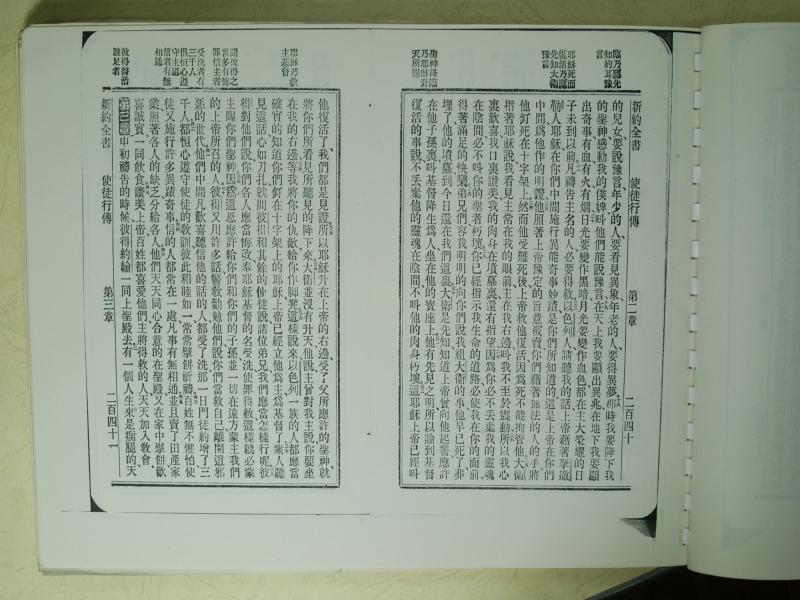 臨乃應先
知約耳豫
言
耶穌死而
復活乃應
先知大衛
豫言
聖神降臨
乃耶穌升
天所賜
新約全書 使徒行傳 第二章 二百四十
的兒女要說豫言年少的人要看見異象年老的人要得異夢那時我要降下我
的聖神感動我的僕婢叫他們能說豫言在天上我要顯出異兆在地下我要顯
出奇事有血有火有烟日光要變作黑暗月光要變作血色都在主大榮耀的日
子未到以前凡禱告主名的人必要得救以色列人請聽我的話上帝藉著拏撒
勒人耶穌在你們中間施行異能奇事妙蹟是你們所知道的這是上帝在你們
中間爲他作的明證他照著上帝豫定的旨意被賣你們藉著無法的人的手將
他釘死在十字架上然而他受難死後上帝救他復活因爲死不能拘管他大衛
指著耶穌說我看見主常在我的眼前主在我右邊叫我不至於震動所以我心
裏歡喜我口裏讚美我的肉身在墳墓裏還有指望因爲你必不丟棄我的靈魂
在陰間必不叫你的聖者朽壞你已經指示我生命的道路必使我在你的面前
得著滿足的快樂弟兄們容我明明的向你們說我祖大衛的事他早已死了葬
埋了他的墳墓到今日還在我們這裏大衛是先知知道上帝曾向他起誓應許
在他子孫裏叫基督降生爲人坐在他的寶座上他有先見之明所以論到基督
復活的事說不丟棄他的靈魂在陰間不叫他的肉身朽壞這耶穌上帝已經叫
耶穌乃救
主基督
聞彼得之
言多有悔
罪信主者
受洗者有
三千人
俱恒心遵
守主道
信者有無
相通
彼得醫治
跛足者
他復活了我們都是見證所以耶穌升在上帝的右邊受了父所應許的聖神就
將你們所看見所聽見的降下來大衛並沒有升天他說主曾對我主說你要坐
在我的右邊等我將你的仇敵給你作脚凳這樣說來以色列一族的人都應當
確實的知道你們釘在十字架上的耶穌上帝已經立他爲主爲基督了衆人聽
見這話心如刀扎就問彼得和其餘的使徒說諸位弟兄我們應當怎樣行呢彼
得對他們說你們各人應當悔改奉耶穌基督的名受洗使罪得赦這樣就必蒙
主賜你們聖神因爲這恩應許給你們和你們的子孫並一切在遠方蒙主我們
的上帝所召的人彼得又用許多話警戒勸勉他們說你們當救自己離開這邪
惡的世代他們中間凡歡喜聽信他的話的人都受了洗那一日門徒約增了三
千人都恒心遵守使徒的敎訓彼此相睦如一常常擘餅祈禱百姓無不懼怕使
徒又施行許多異蹟奇事信的人都常在一處凡事有無相通並且賣了田產家
業照著各人的缺乏分給各人他們天天同心合意的在聖殿又在家中擘餅歡
喜誠實一同飮食讚美上帝百姓都喜愛他們主將得救的人天天加入敎會
第三章 申初禱告的時候彼得約翰一同上聖殿去有一個人生來是瘸腿的天
新約全書 使徒行傳 第三章 二百四十一